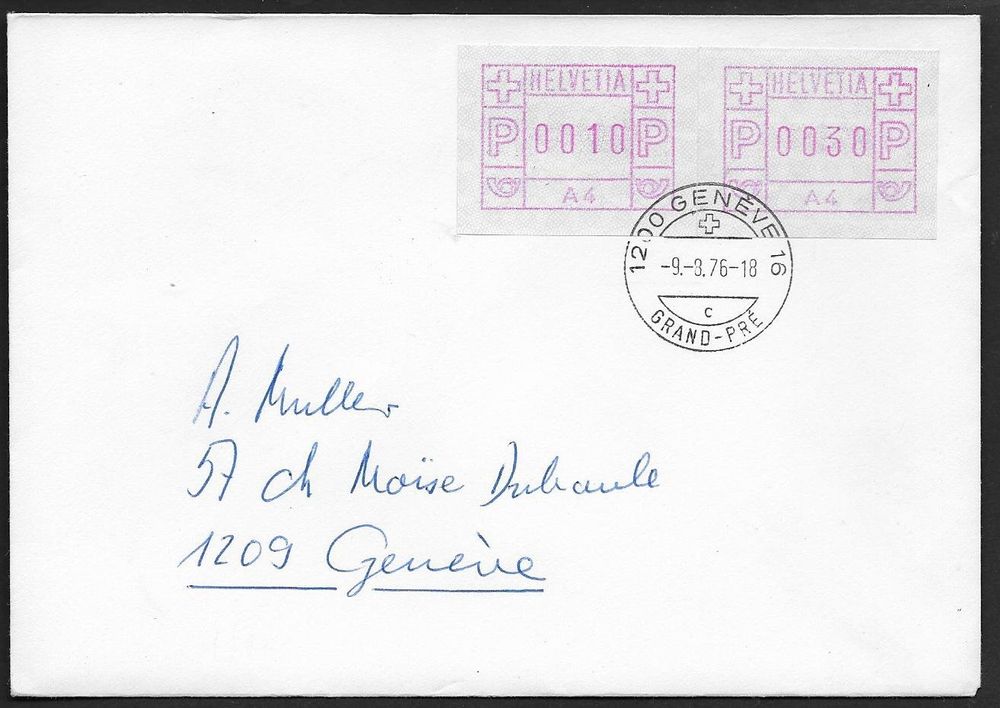 HELVETIA
P 0010 P
A4
HELVETIA
P 0030 P
A4
1200 GENÈVE 16
-9.-8.76-18
c
GRAND-PRÉ
A. Muller
57 ch Moïse Duboule
1209 Genève